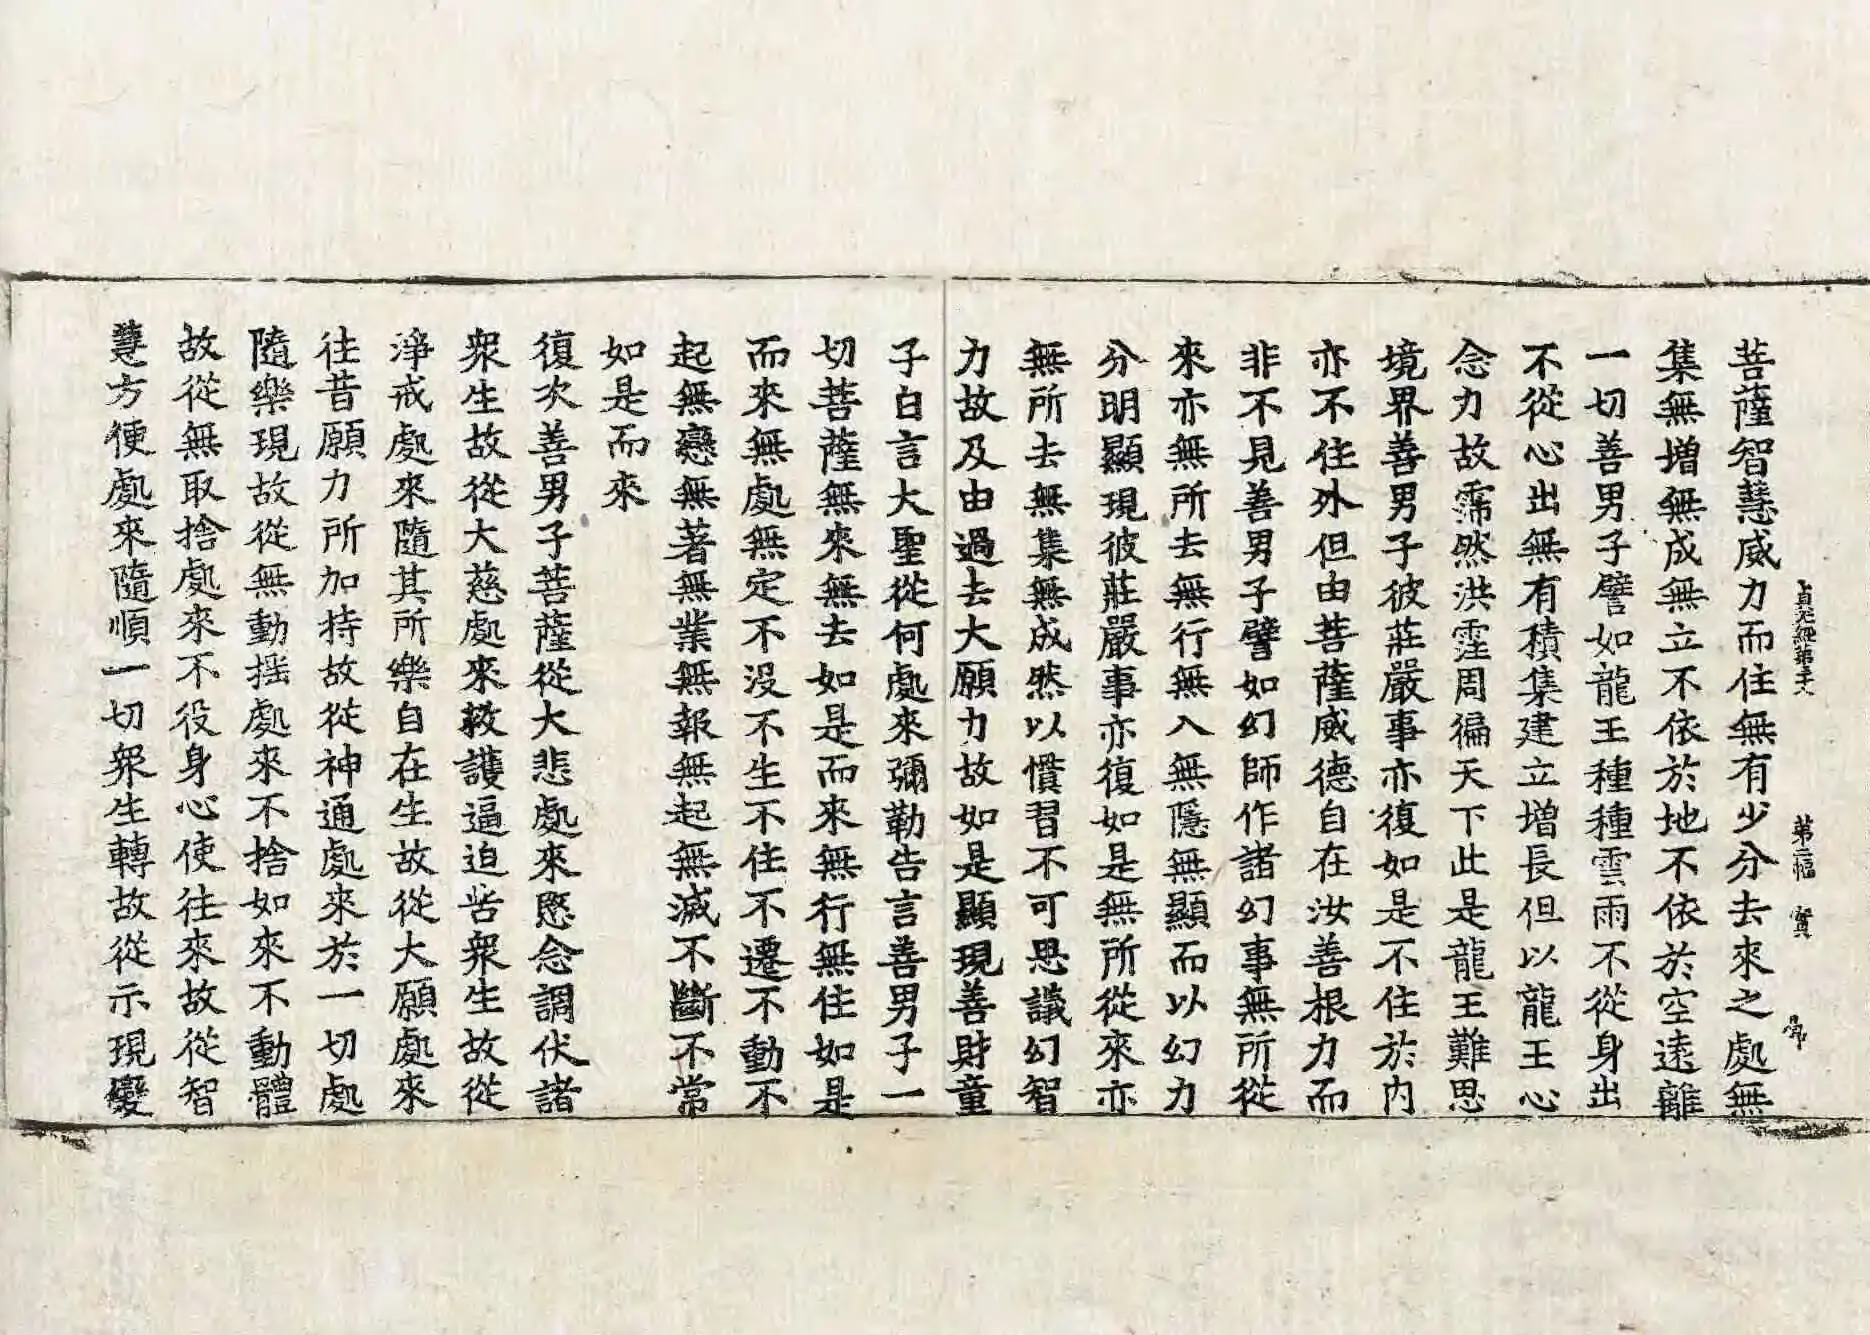 貞元經第三大 第二幅 實 帚
菩薩智慧威力而住無有少分去來之處無
集無增無成無立不依於地不依於空遠離
一切善男子譬如龍王種種雲雨不從身出
不從心出無有積集建立增長但以龍王心
念力故霈然洪霔周徧天下此是龍王難思
境界善男子彼莊嚴事亦復如是不住於內
亦不住外但由菩薩威德自在汝善根力而
非不見善男子譬如幻師作諸幻事無所從
來亦無所去無行無入無隱無顯而以幻力
分明顯現彼莊嚴事亦復如是無所從來亦
無所去無集無成然以慣習不可思議幻智
力故及由過去大願力故如是顯現善財童
子白言大聖從何處來彌勒告言善男子一
切菩薩無來無去如是而來無行無住如是
而來無處無定不沒不生不住不遷不動不
起無戀無著無業無報無起無滅不斷不常
如是而來
復次善男子菩薩從大悲處來愍念調伏諸
衆生故從大慈處來救護逼迫苦衆生故從
淨戒處來隨其所樂自在生故從大願處來
往昔願力所加持故從神通處來於一切處
隨樂現故從無動搖處來不捨如來不動體
故從無取捨處來不役身心使往來故從智
慧方便處來隨順一切衆生轉故從示現變